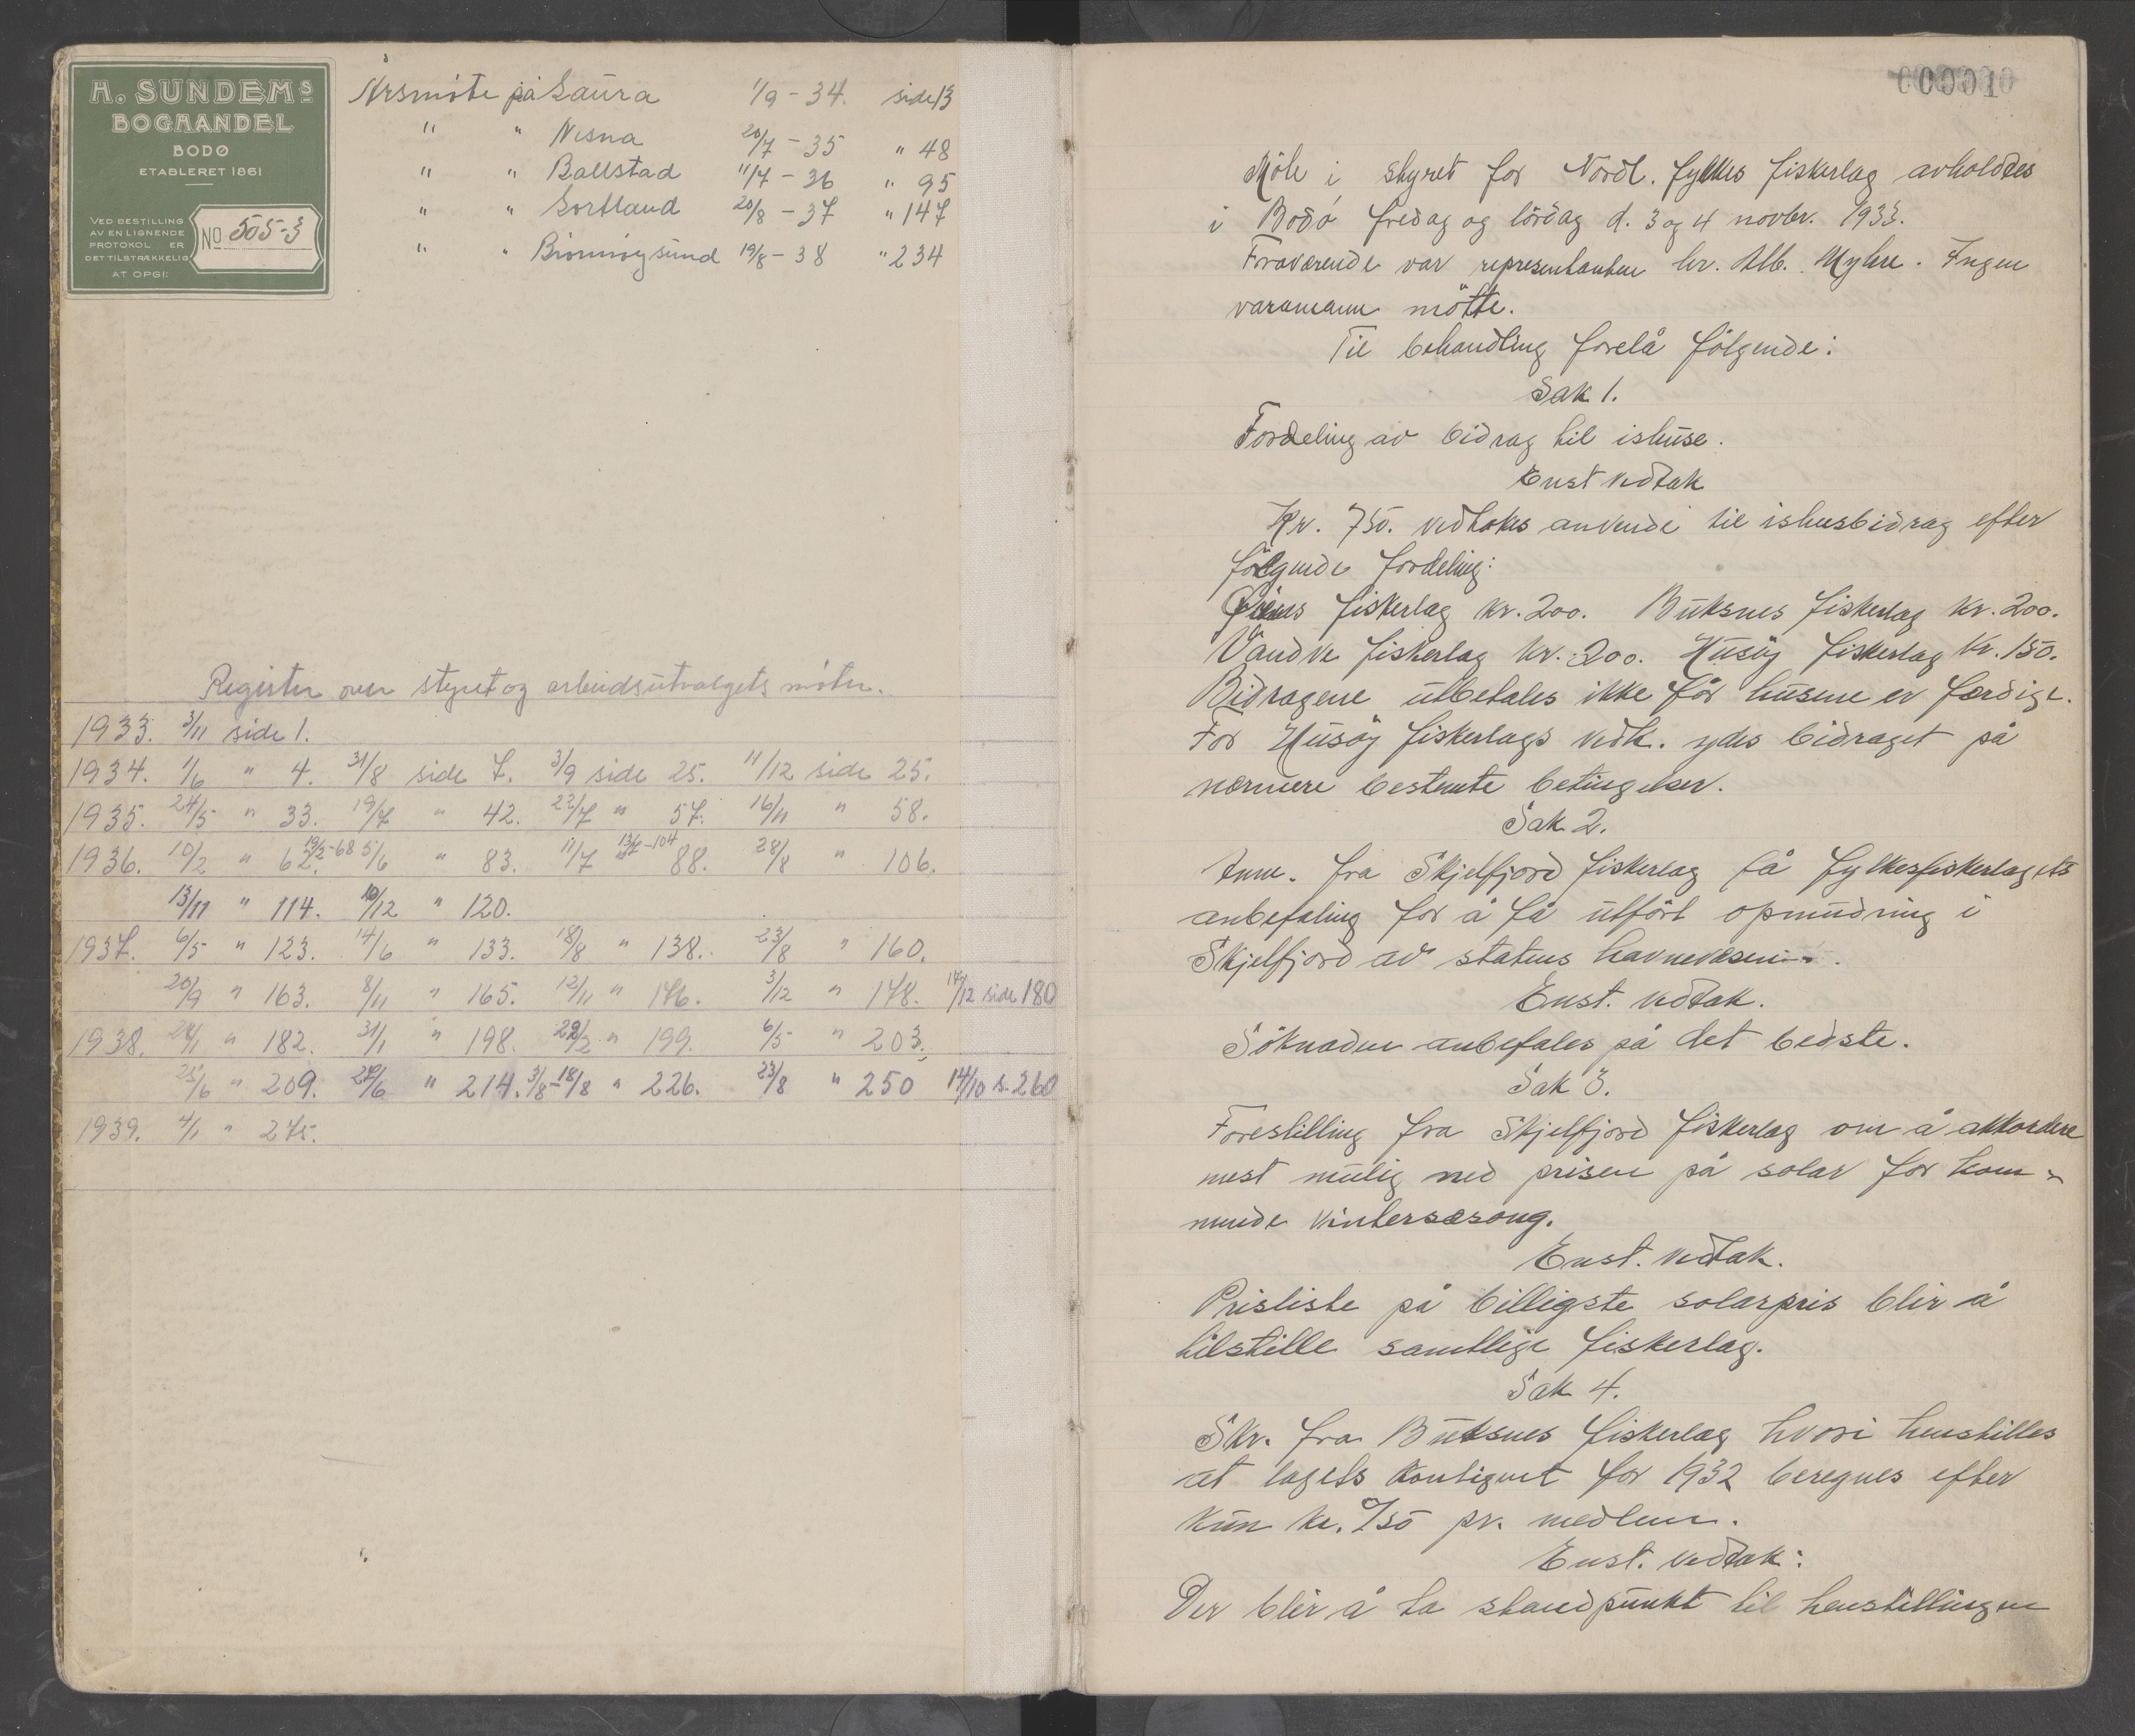 A. SUNDEMS
BOGHANDEL
BODØ
ETABLERET 1861
VED BESTILLING
AV EN LIGNENDE
PROTOKOL ER
DET TILSTRÆKKELIG
AT OPGI:
No 505-3
Årsmöte på Saura 1/9 - 34. side 13
" " Nesna 20/7 - 35 " 48
" " Ballstad 11/7 - 36 " 95
" " Sortland 20/8 - 37 " 147
" " Brönnöysund 19/8 - 38 " 234
Register over styret og arbeidsutvalgets möter.
1933. 3/11 side 1.
1934. 1/6 " 4. 31/8 side 7. 3/9 side 25. 11/12 side 25.
1935. 24/5 " 33. 19/7 " 42. 22/7 " 57. 16/11 " 58.
1936. 10/2 " 62. 19/2-68 5/6 " 83. 11/7 " 88. 13/7-104 28/8 " 106.
13/11 " 114. 10/12 " 120.
1937. 6/5 " 123. 14/6 " 133. 18/8 " 138. 23/8 " 160.
20/9 " 163. 8/11 " 165. 12/11 " 176. 3/12 " 178. 14/12 side 180
1938. 24/1 " 182. 31/1 " 198. 28/2 " 199. 6/5 " 203.
25/6 " 209. 26/6 " 214. 3/8-18/8 " 226. 23/8 " 250 14/10 s. 260
1939. 4/1 " 275.
Möte i styret for Nordl. fylkes fiskerlag avholdtes
i Bodö fredag og lördag d. 3 og 4 novbr. 1933.
Fraværende var representanten hr. Alb. Myhre. Ingen
varamann mötte.
Til behandling forelå fölgende:
Sak 1.
Fordeling av bidrag til ishuse.
Enst vedtak
Kr. 750. vedtokes anvendt til ishusbidrag efter
fölgende fordeling:
fiskerlag kr. 200. Buksnes fiskerlag kr. 200.
Vandve fiskerlag kr. 200. Husöy fiskerlag kr. 150.
Bidragene utbetales ikke för husene er færdige.
For Husöy fiskerlags vedk. ydes bidraget på
nærmere bestemte betingelser.
Sak 2.
Anm. fra Skjelfjord fiskerlag få fylkesfiskerlagets
anbefaling for å få utfört opmudring i
Skjelfjord av statens havnevæsen.
Enst. vedtak.
Söknaden anbefales på det bedste.
Sak 3.
Forestilling fra Skjelfjord fiskerlag om å akkordere
mest mulig ned prisen på solar for kom-
mende vintersæsong.
Enst. vedtak.
Prisliste på billigste solarpris blir å
tilstille samtlige fiskerlag.
Sak 4.
Skr. fra Buksnes fiskerlag hvori henstilles
at lagets kontigent for 1932 beregnes efter
kun kr. 0/50 pr. medlem.
Enst. vedtak:
Der blir å ta standpunkt til henstillingen